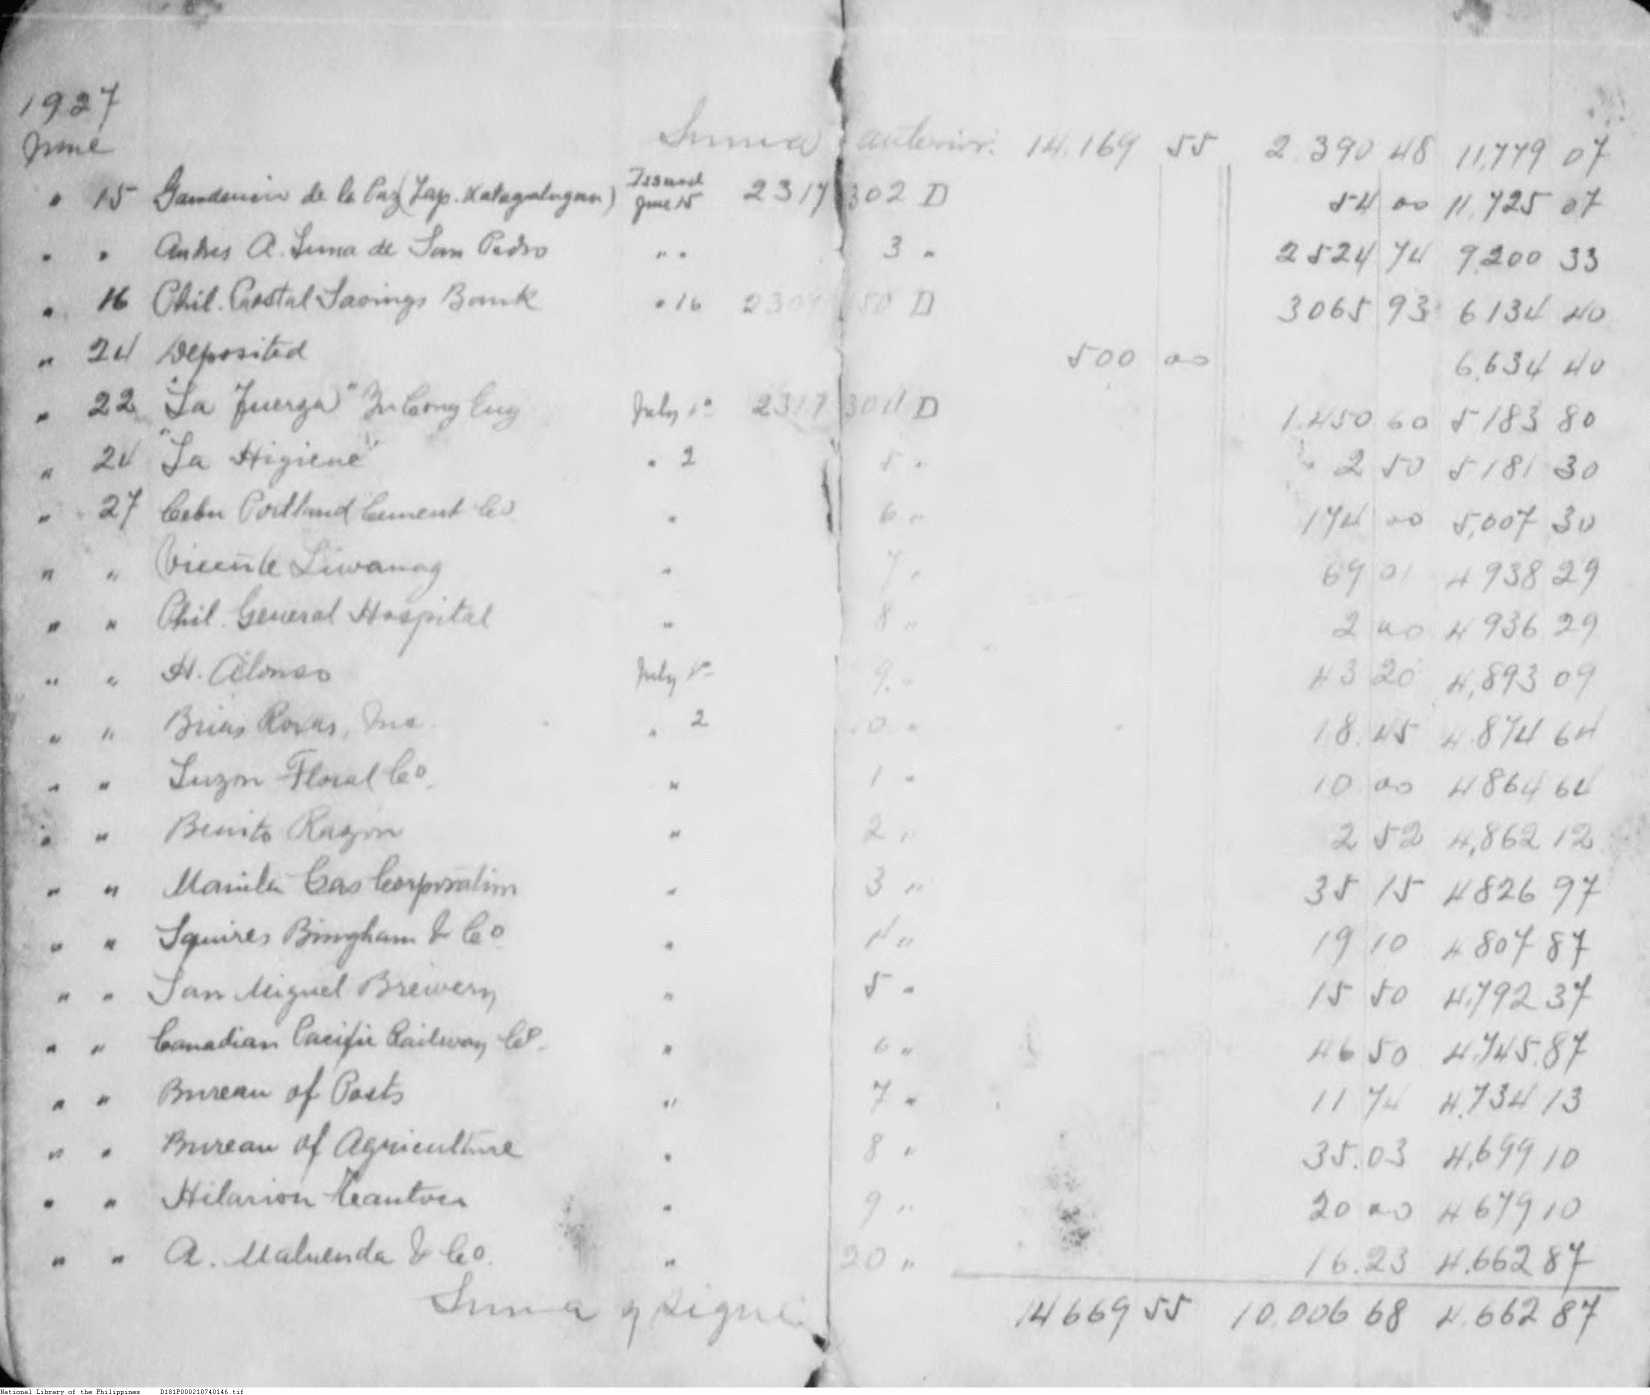 1927
June Suma anterior. 14.169 55 2.390 48 11,779 07
" 15 Gaudencio de la Paz (Zap. Katagalugan) Issued June 15 2317 302 D 54 00 11,725 07
" " Andres A. Luna de San Pedro " " 3 " 2524 74 9,200 33
" 16 Phil. Postal Savings Bank " 16 D 3065 93 6134 40
" 24 Deposited 500 00 6,634 40
" 22 "La Fuerza" July 1º 2317 304 D 1.450 60 5183 80
" 24 "La Higiene" " 2 5 " 2 50 5181 30
" 27 Cebu Portland Cement Co " 6 " 174 00 5,007 30
" " Vicente Liwanag " 7 " 69 01 4938 29
" " Phil. General Hospital " 8 " 2 00 4936 29
" " H. Alonso July 1º 9 " 43 20 4,893 09
" " Brias Roxas, Inc. " 2 10 " 18.45 4.874 64
" " Luzon Floral Co. " 1 " 10 00 4864 64
" " Benito Razon " 2 " 2 52 4,862 12
" " Manila Gas Corporation " 3 " 35 15 4826 97
" " Squires Bingham & Co " 4 " 19 10 4807 87
" " San Miguel Brewery " 5 " 15 50 4,792 37
" " Canadian Pacific Railway Co. " 6 " 46 50 4,745.87
" " Bureau of Posts " 7 " 11 74 4,734 13
" " Bureau of Agriculture " 8 " 35.03 4,699 10
" " Hilarion " 9 " 20 00 4679 10
" " A. Maluenda & Co. " 20 " 16.23 4.662 87
Suma y sigue 14669 55 10.006 68 4.662 87
National Library of the Philippines D181P000210740146.tif